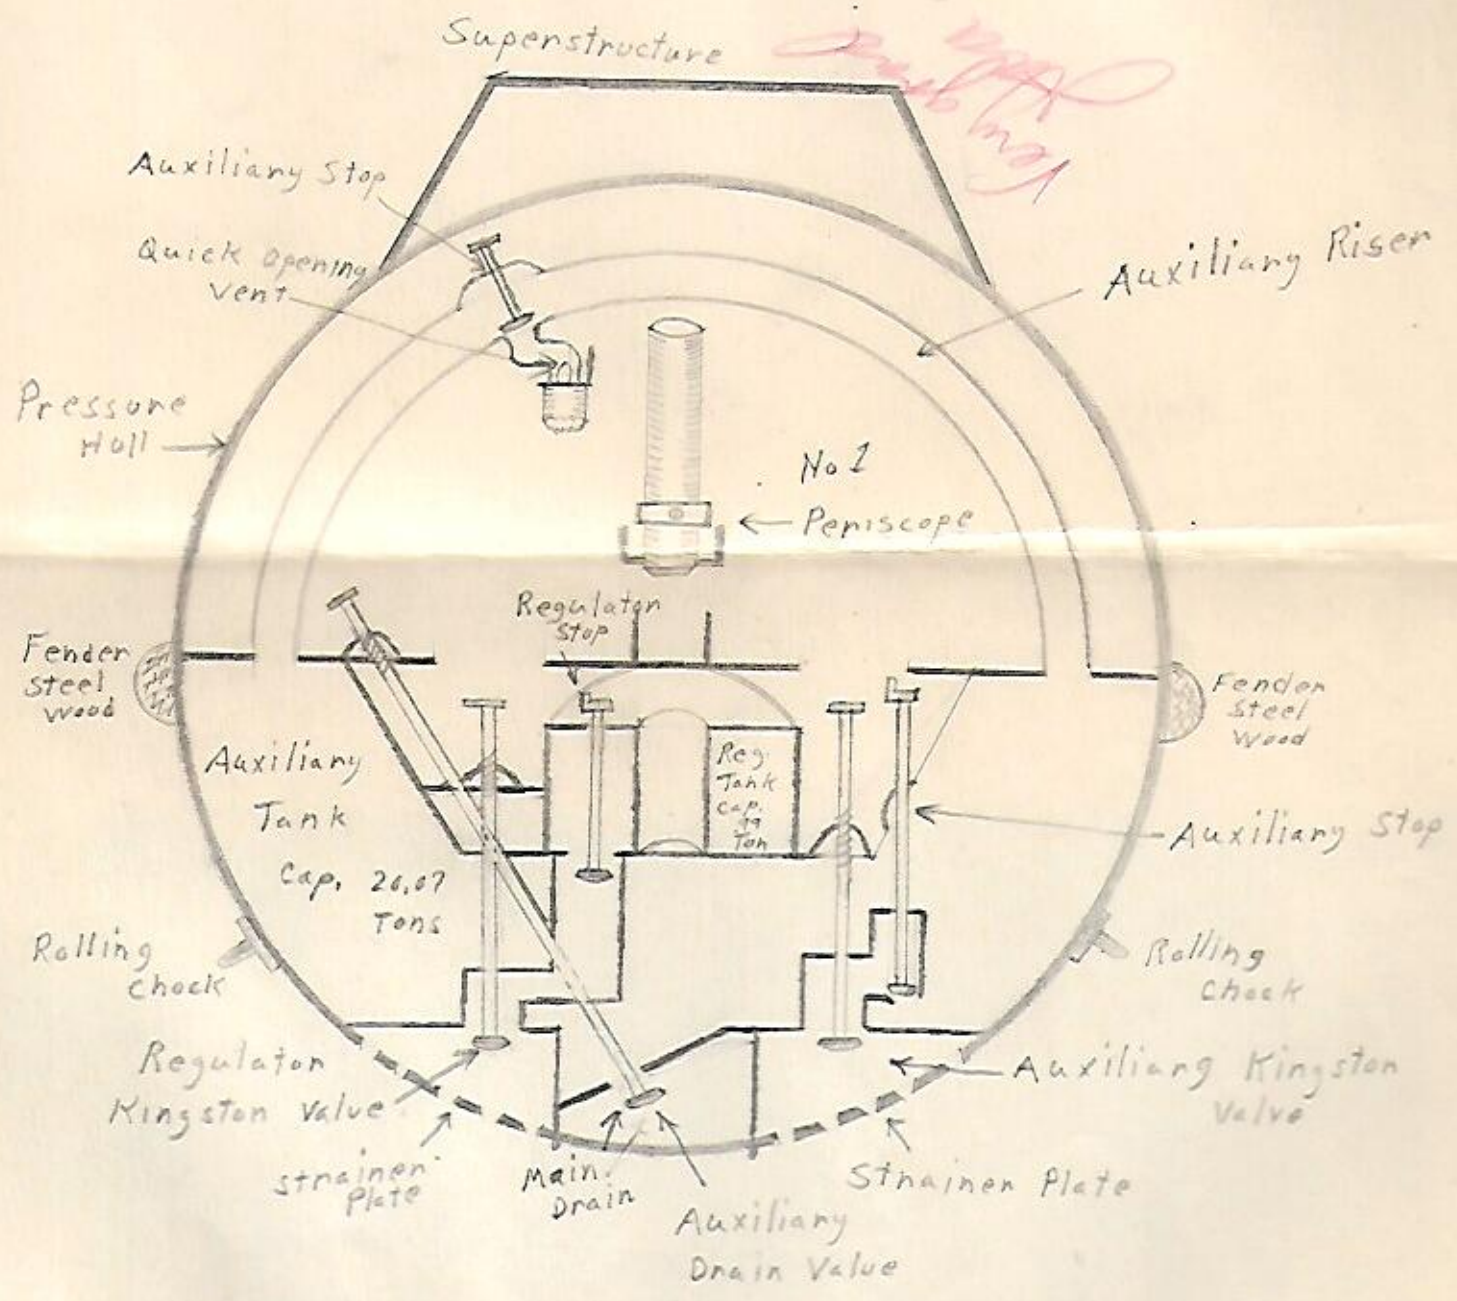 Superstructure
Auxiliary Stop
Quick Opening
Vent
Auxiliary Riser
Pressure
Hull
No 1
Periscope
Regulator
Stop
Fender
Steel
Wood
Fender
Steel
Wood
Auxiliary
Tank
Cap. 20.07
Tons
Reg.
Tank
Cap.
Ton
Auxiliary Stop
Rolling
Chock
Rolling
Chock
Regulator
Kingston Valve
Auxiliary Kingston
Valve
Strainer
Plate
Main
Drain
Strainer Plate
Auxiliary
Drain Valve